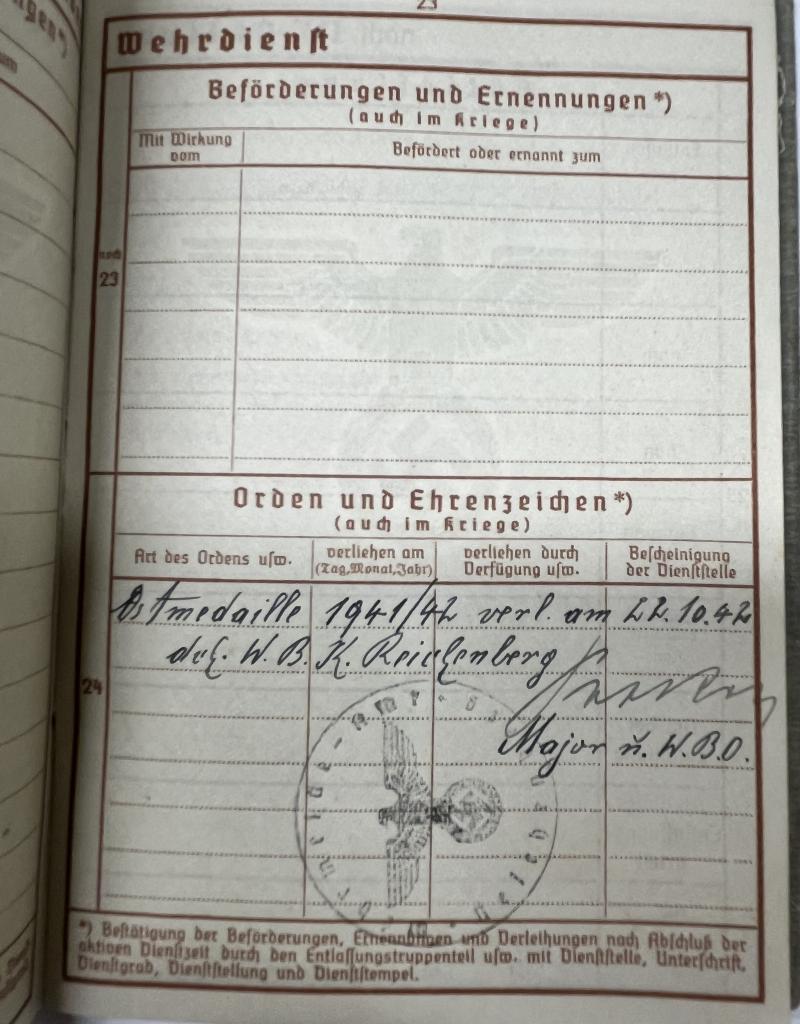 23
Wehrdienst
Beförderungen und Ernennungen*)
(auch im Kriege)
Mit Wirkung vom
Befördert oder ernannt zum
noch 23
Orden und Ehrenzeichen*)
(auch im Kriege)
Art des Ordens usw.
verliehen am (Tag, Monat, Jahr)
verliehen durch Verfügung usw.
Bescheinigung der Dienststelle
Ostmedaille 1941/42 verl. am 22.10.42
W. B. K. Reichenberg
24
Major u. W.B.O.
*) Bestätigung der Beförderungen, Ernennungen und Verleihungen nach Abschluß der
aktiven Dienstzeit durch den Entlassungstruppenteil usw. mit Dienststelle, Unterschrift,
Dienstgrad, Dienststellung und Dienststempel.